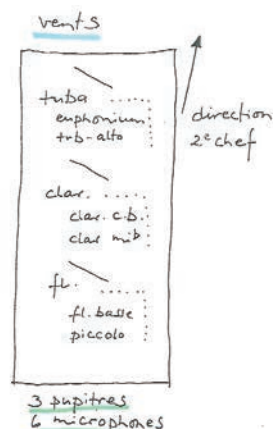 vents
tuba
euphonium
trb-alto
direction
2e chef
clar.
clar. c.b.
clar mib
fl.
fl. basse
piccolo
3 pupitres
6 microphones